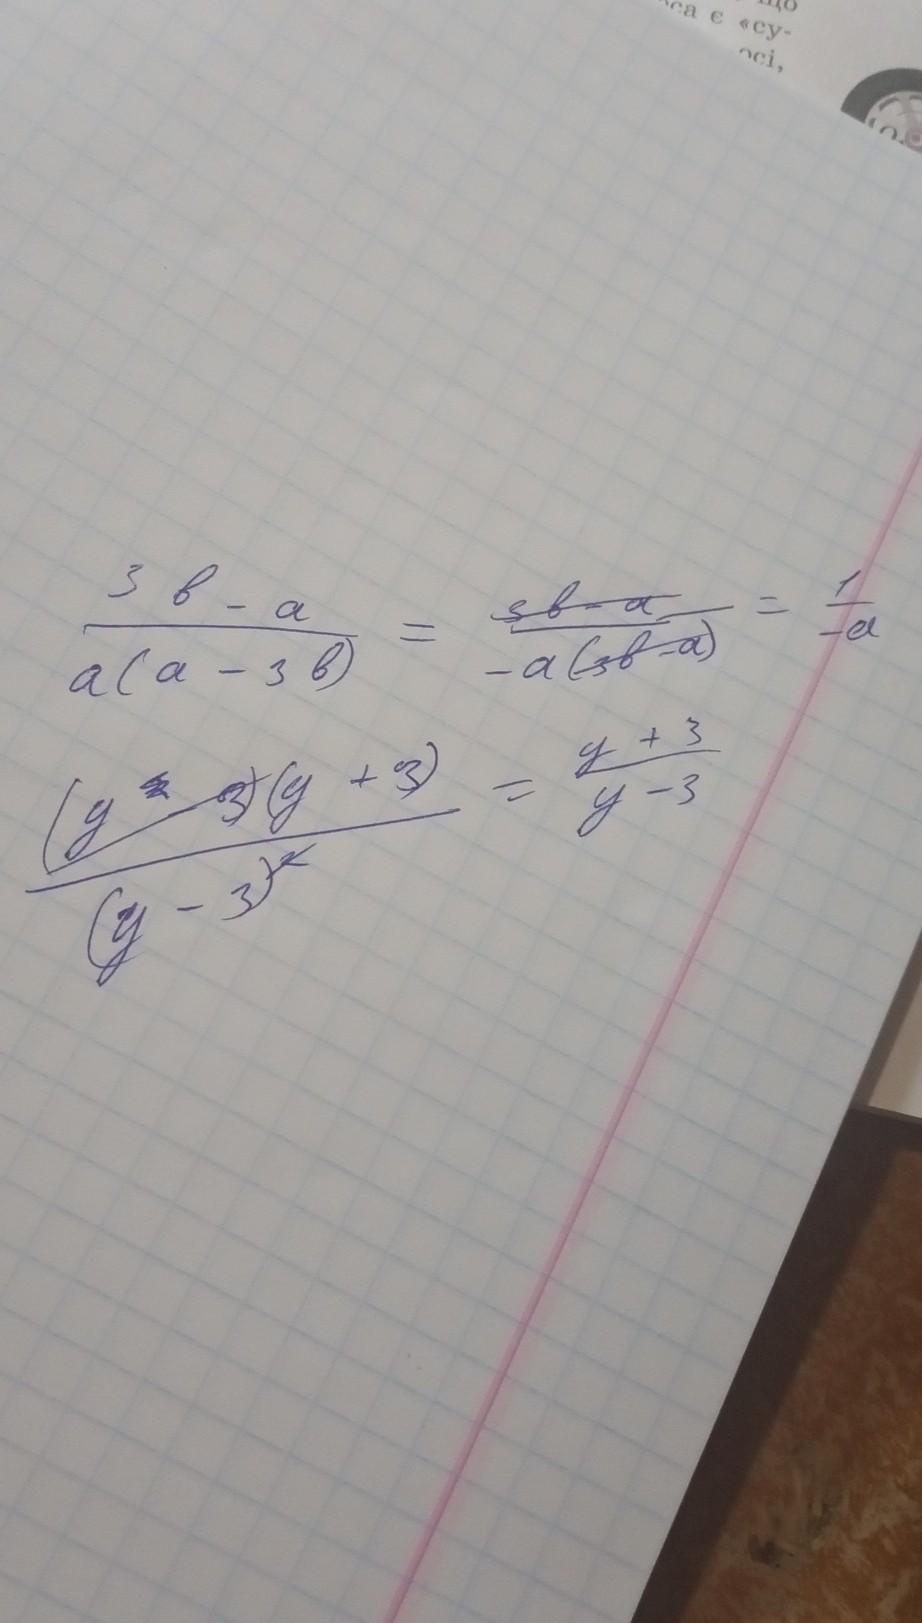 що
са є «су-
осі,
3b - a / a(a - 3b) = 3b - a / -a(3b - a) = 1 / -a
(y - 3)(y + 3) / (y - 3)² = y + 3 / y - 3